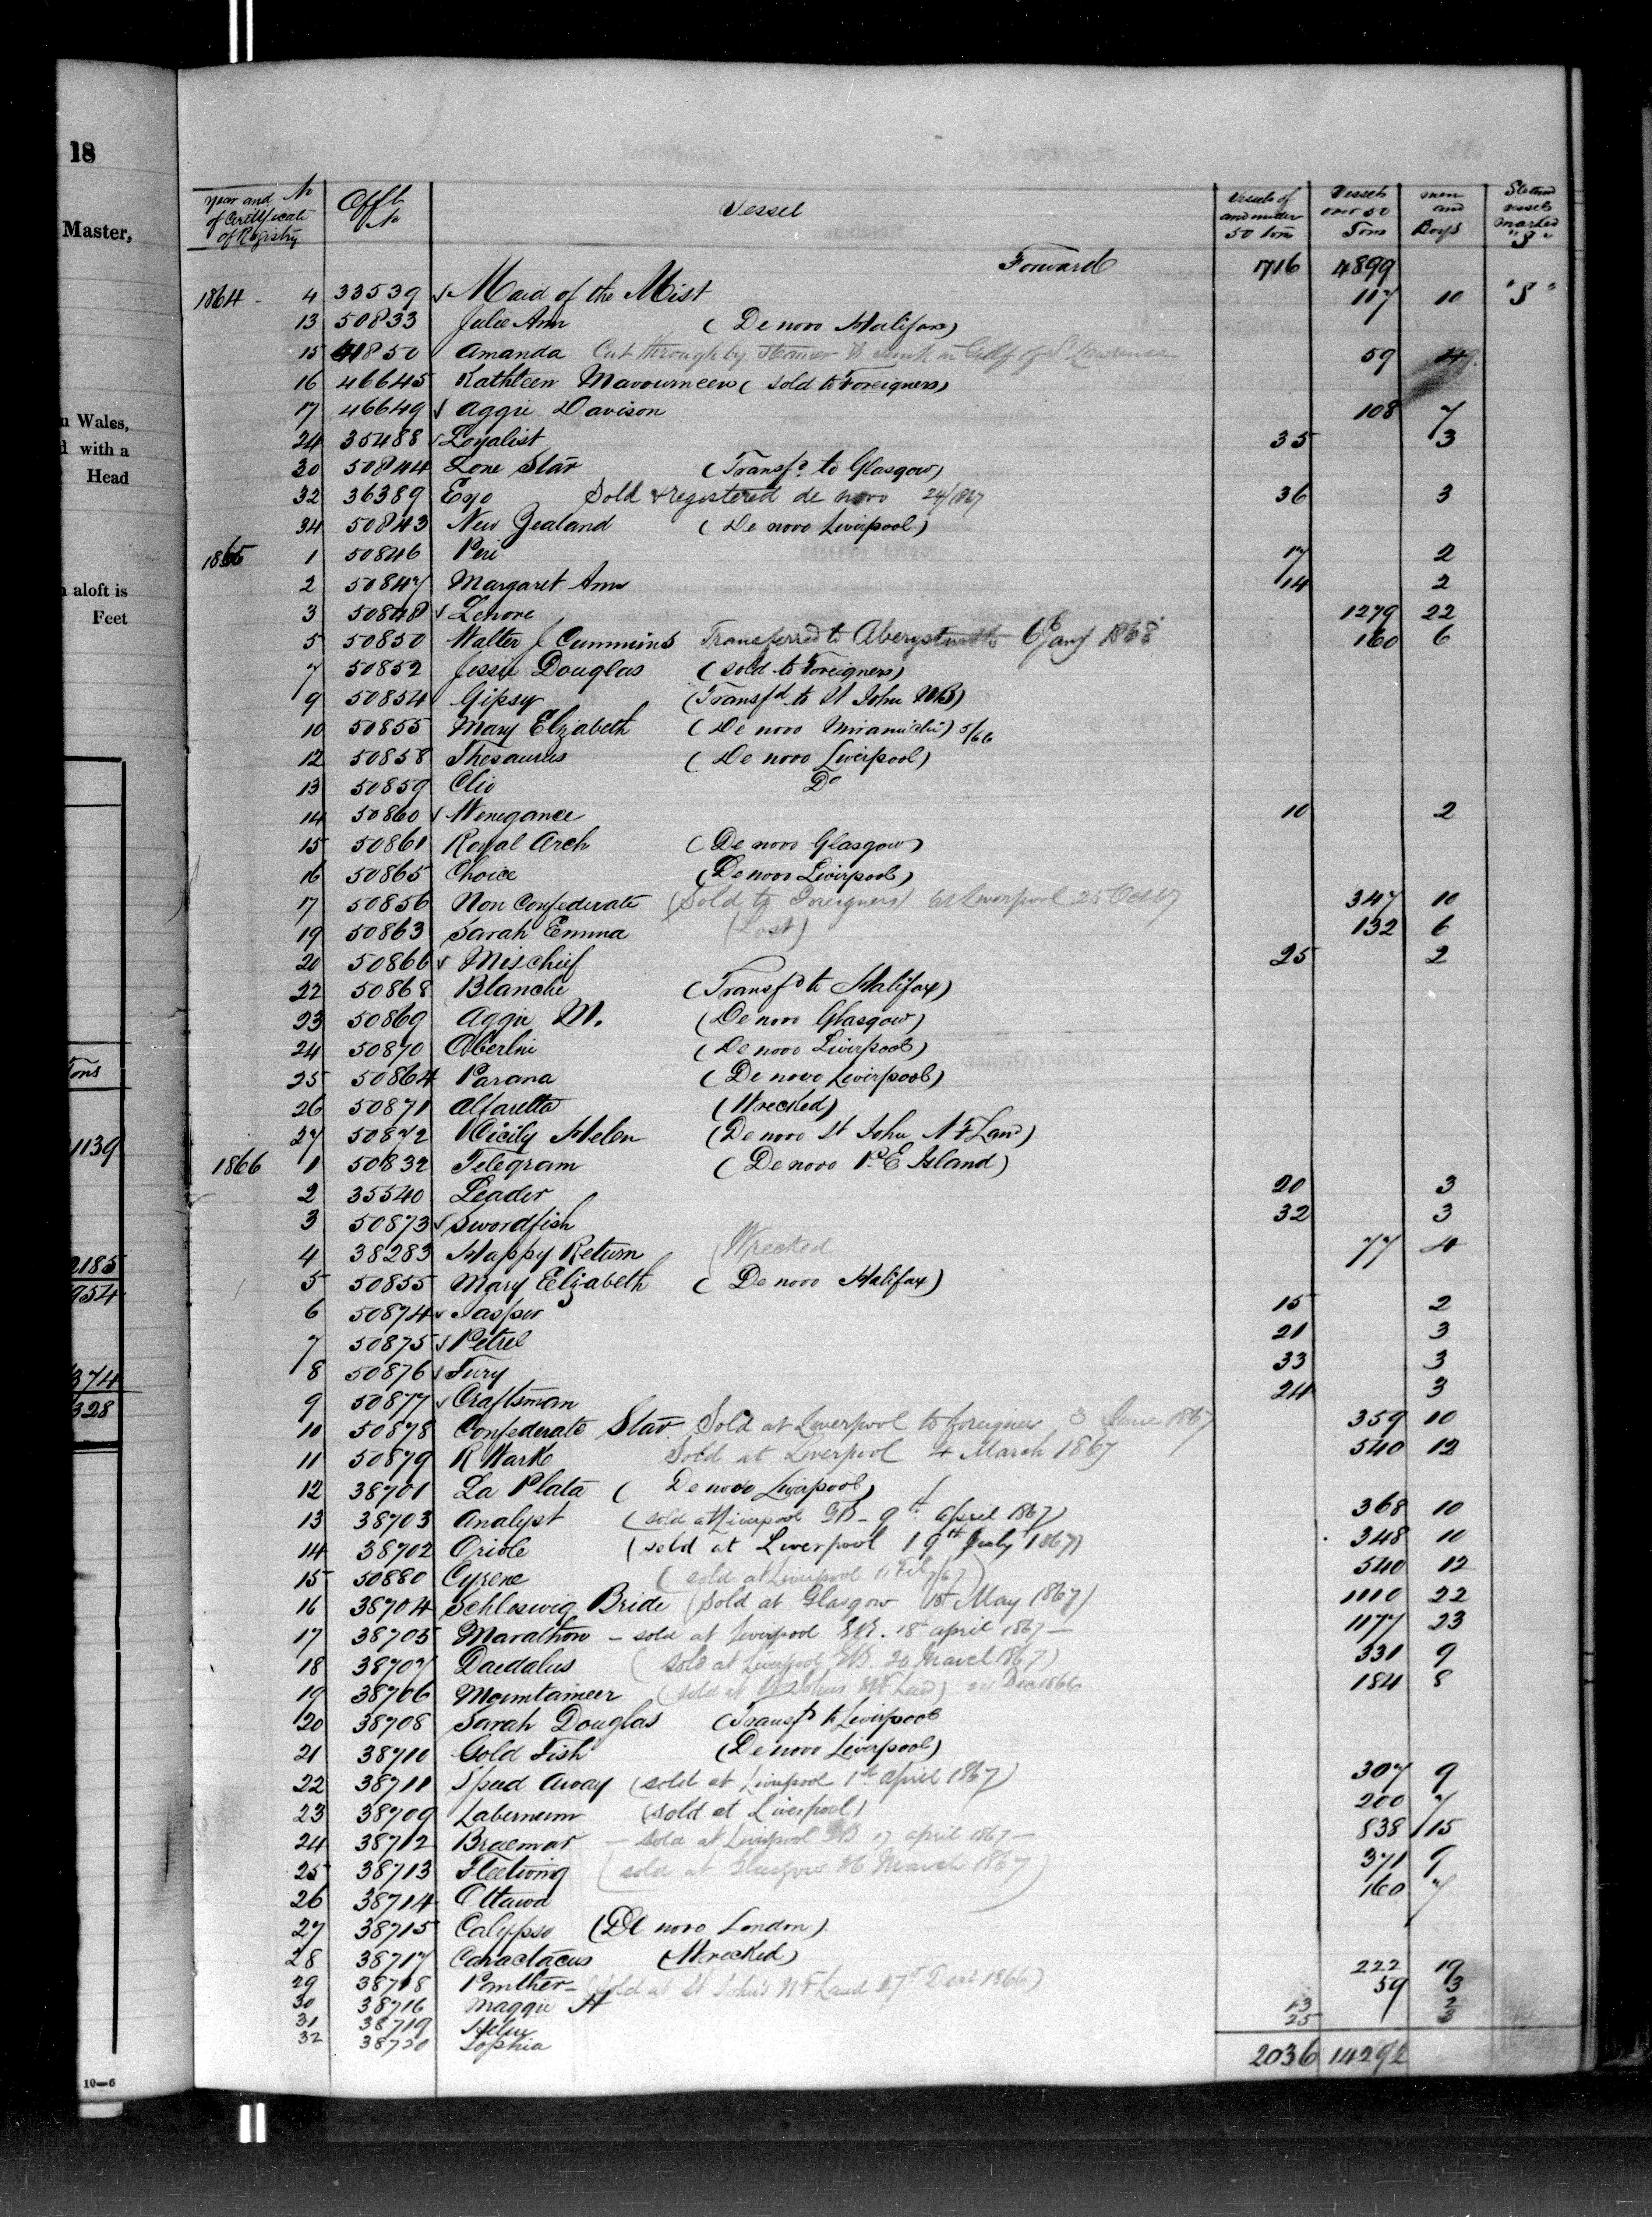 18
Master,
n Wales,
d with a
Head
n aloft is
Feet
Tons
1139
2185
954
374
328
10—6
Year and No of Certificate of Registry | Offl No | Vessel | Vessels of and under 50 tons | Vessels over 50 Tons | men and Boys | Steam vessels marked "S"
Forward 1716 4899
1864 - 4 33539 √ Maid of the Mist 117 10 "S"
13 50833 Julie Ann (De novo Halifax)
15 41850 Amanda Cut through by steamer & sunk in Gulf of St Lawrence 59
16 46645 Kathleen Mavourneen (sold to Foreigners)
17 46649 √ Aggie Davison 108 7
24 35488 √ Loyalist 35 3
30 50844 Lone Star (Transfd to Glasgow)
32 36389 Ego Sold & registered de novo 24/1867 36 3
34 50843 New Zealand (De novo Liverpool)
1865 1 50846 Peri 17 2
2 50847 Margaret Ann 14 2
3 50848 √ Lenore 1279 22
5 50850 Walter J Cummins Transferred to Aberystwith 6th Jany 1868 160 6
7 50852 Jessie Douglas (sold to Foreigners)
9 50854 Gipsy (Transfd to St John NB)
10 50855 Mary Elizabeth (De novo Miramichi) 5/66
12 50858 Thesaurus (De novo Liverpool)
13 50859 Clio Do
14 50860 √ Wenegance 10 2
15 50861 Royal Arch (De novo Glasgow)
16 50865 Choice (De novo Liverpool)
17 50856 Non Confederate (Sold to Foreigners) at Liverpool 25 Oct 67 347 10
19 50863 Sarah Emma (Lost) 132 6
20 50866 √ Mischief 25 2
22 50868 Blanche (Transfd to Halifax)
23 50869 Aggie M. (De novo Glasgow)
24 50870 Oberlin (De novo Liverpool)
25 50864 Parana (De novo Liverpool)
26 50871 Alfaretta (Wrecked)
27 50872 Cicily Helen (De novo St John N F Land)
1866 1 50832 Telegram (De novo P. E Island)
2 35540 Leader 20 3
3 50873 √ Swordfish 32 3
4 38283 Happy Return (Wrecked 77 4
5 50855 Mary Elizabeth (De novo Halifax)
6 50874 √ Jasper 15 2
7 50875 √ Petrel 21 3
8 50876 √ Fury 33 3
9 50877 √ Craftsman 24 3
10 50878 Confederate Star Sold at Liverpool to foreigners 3 June 1867 359 10
11 50879 R Wark Sold at Liverpool 4 March 1867 540 12
12 38701 La Plata (De novo Liverpool)
13 38703 Analyst (sold at Liverpool GB - 9th april 1867) 368 10
14 38702 Oriole (sold at Liverpool 19th July 1867) 348 10
15 50880 Cyrene (sold at Liverpool 11 Feb /67) 540 12
16 38704 Schleswig Bride (Sold at Glasgow 1st May 1867) 1110 22
17 38705 Marathon - sold at Liverpool GB. 18th april 1867 - 1177 23
18 38707 Daedalus (sold at Liverpool GB. 20 March 1867) 331 9
19 38706 Mountaineer (sold at St Johns NF Land) 24 Dec 1866 184 8
20 38708 Sarah Douglas (Transfd to Liverpool
21 38710 Gold Fish (De novo Liverpool)
22 38711 Speed Away (sold at Liverpool 1st april 1867) 307 9
23 38709 Labernum (sold at Liverpool) 200 7
24 38712 Braemar - sold at Liverpool GB 17 april 1867 - 838 15
25 38713 Fleetwing (sold at Glasgow 26 March 1867) 371 9
26 38714 Ottawa 160 7
27 38715 Calypso (De novo London)
28 38717 Caractacus (Wrecked)
29 38718 Panther - (sold at St John's NF Land 27th Decr 1866) 222 19
30 38716 Maggie H 59 3
31 38719 Helen 13 2
32 38720 Sophia 25 3
2036 14292